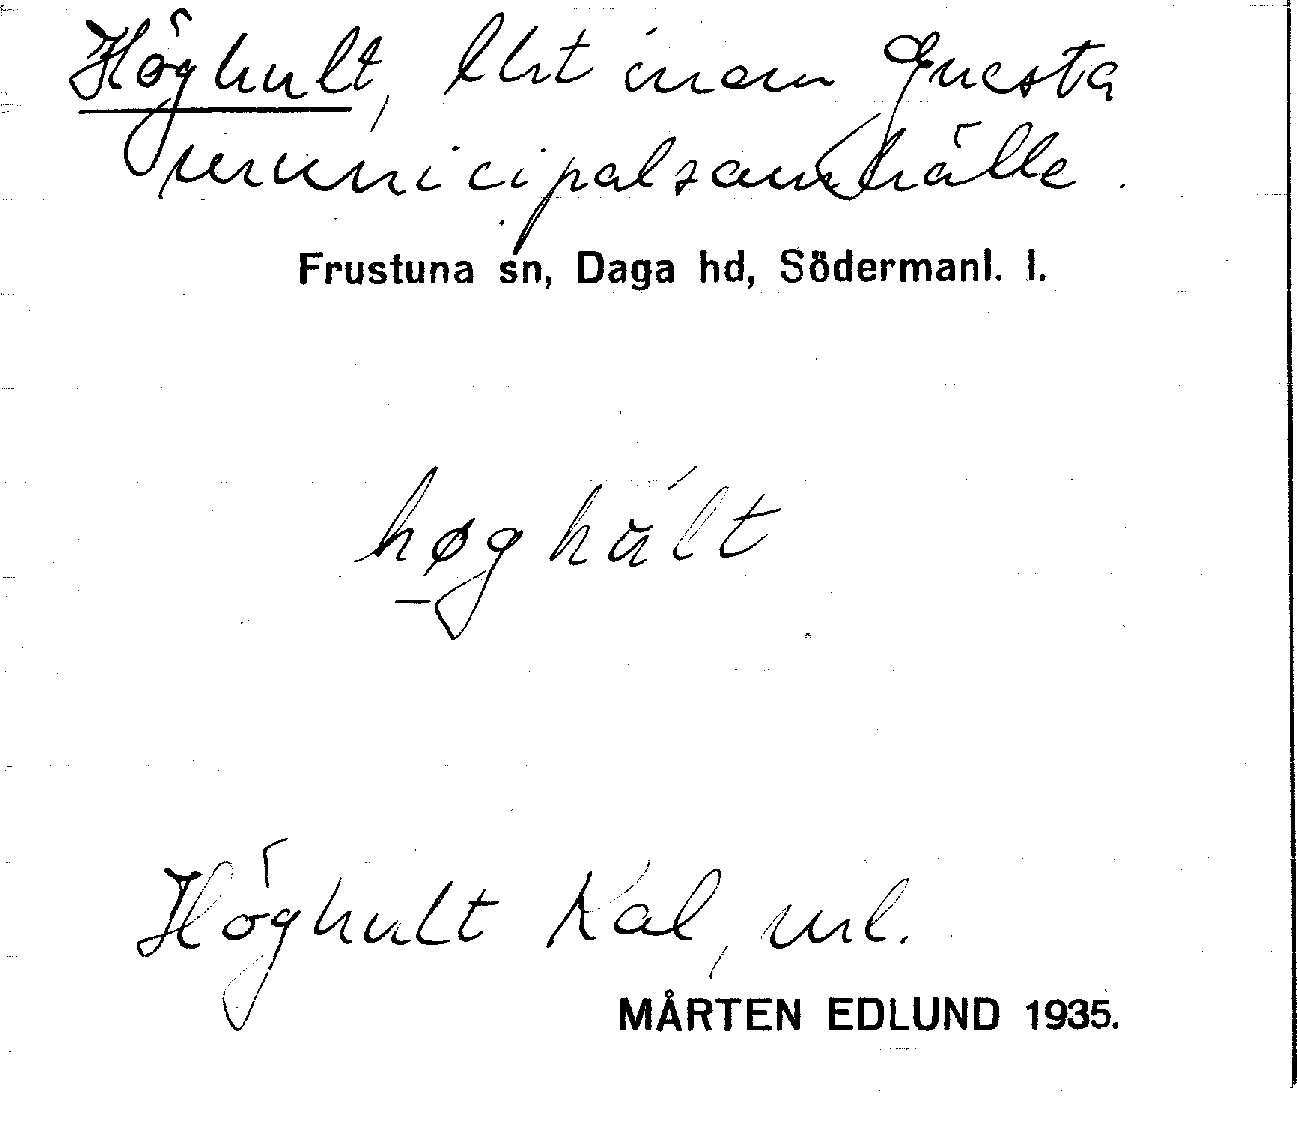 Höghult, lht inom Gnesta
municipalsamhälle.
Frustuna sn, Daga hd, Södermanl. l.
høghult
Höghult Kal, ml.
MÅRTEN EDLUND 1935.